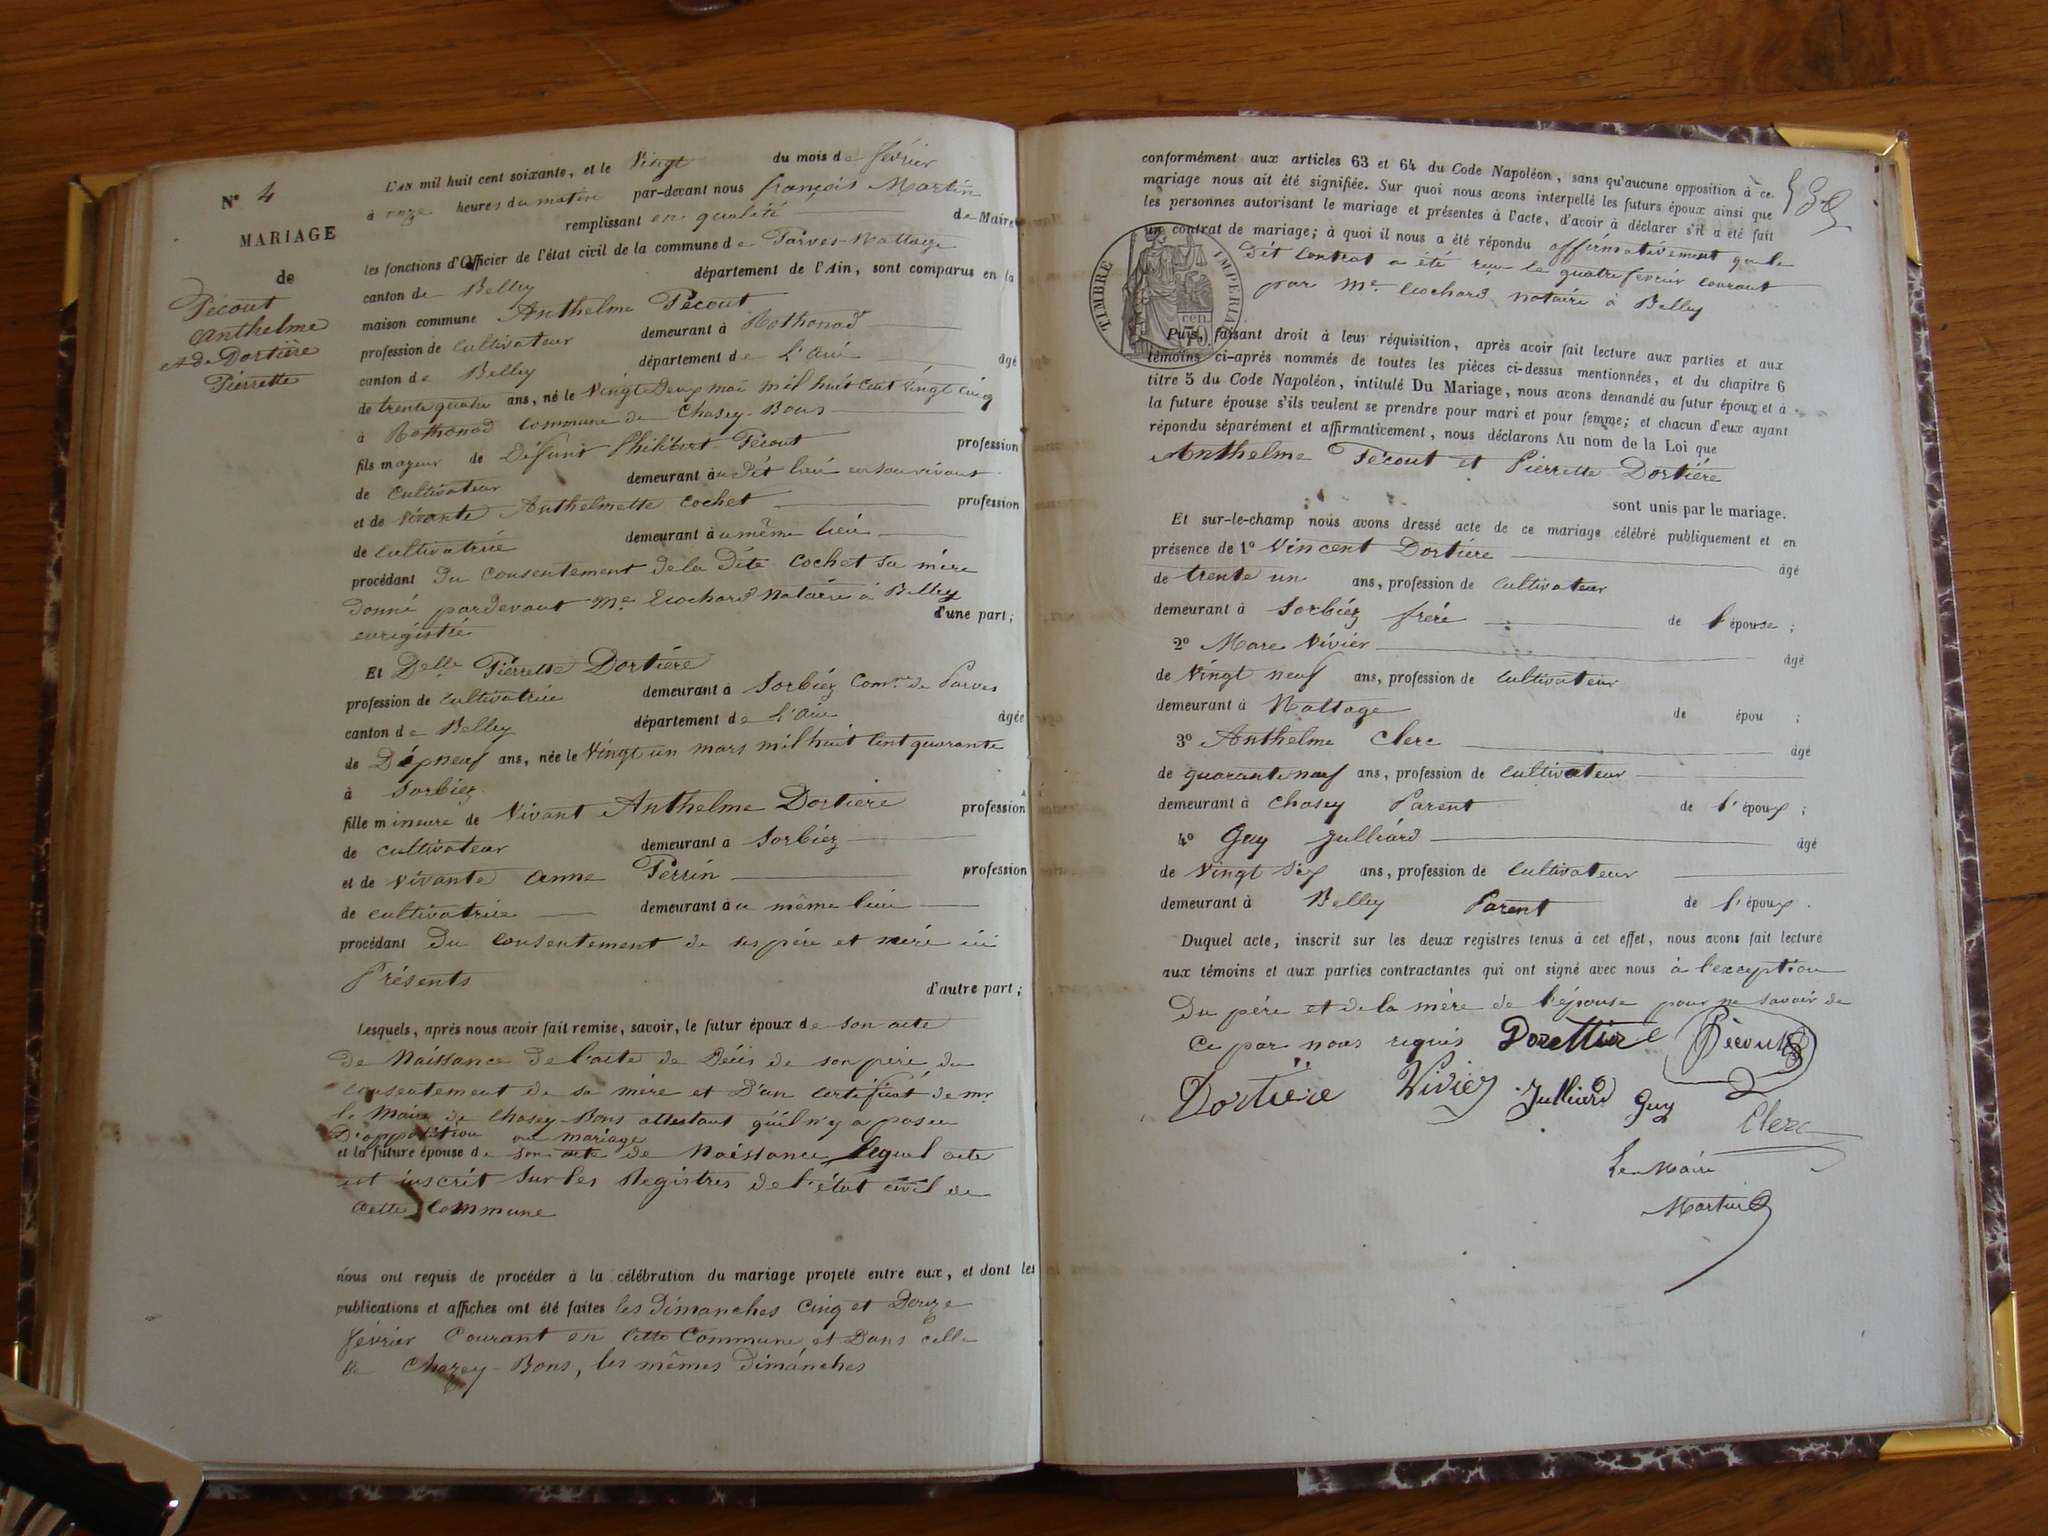 N° 4
MARIAGE
de
Pécout
Anthelme
et de Dortière
Pierrette
L'AN mil huit cent soixante, et le Vingt du mois de février
à onze heures du matin par-devant nous françois Martin
remplissant en qualité de Maire
les fonctions d'Officier de l'état civil de la commune de Parves-Nattage
canton de Belley département de l'Ain, sont comparus en la
maison commune Anthelme Pécout
profession de cultivateur demeurant à Rothonod
canton de Belley département de L'Ain âgé
de trente quatre ans, né le Vingt Deux mai mil huit cent vingt cinq
à Rothonod commune de Chasey-Bons
fils majeur de Défunt Philibert Pécout profession
de cultivateur demeurant au dit lieu en son vivant
et de vivante Anthelmette Cochet profession
de cultivatrice demeurant au même lieu
procédant du consentement de la Dite Cochet sa mère
donné pardevant Me Cochard Notaire à Belley
d'une part;
enregistré
Et Delle Pierrette Dortière
profession de cultivatrice demeurant à Sorbiez Comne de Parves
canton de Belley département de L'Ain âgée
de Dix neuf ans, née le Vingt un mars mil huit cent quarante
à Sorbiez
fille mineure de Vivant Anthelme Dortière profession
de cultivateur demeurant à Sorbiez
et de vivante Anne Perrin profession
de cultivatrice demeurant au même lieu
procédant Du consentement de ses père et mère ici
Présents
d'autre part;
Lesquels, après nous avoir fait remise, savoir, le futur époux de son acte
de Naissance de l'acte de Décès de son père du
consentement de sa mère et D'un certificat de mr
le Maire de Chasey-Bons attestant qu'il n'y a pas eu
D'opposition au mariage
et la future épouse de son acte de Naissance lequel acte
est inscrit sur les Registres de l'état civil de
cette commune
nous ont requis de procéder à la célébration du mariage projeté entre eux, et dont les
publications et affiches ont été faites les Dimanches cinq et Douze
février courant en cette Commune et Dans celle
de Chazey-Bons, les mêmes Dimanches
conformément aux articles 63 et 64 du Code Napoléon, sans qu'aucune opposition à ce
mariage nous ait été signifiée. Sur quoi nous avons interpellé les futurs époux ainsi que
les personnes autorisant le mariage et présentes à l'acte, d'avoir à déclarer s'il a été fait
un contrat de mariage; à quoi il nous a été répondu affirmativement que le
Dit contrat a été reçu le quatre fevrier courant
par Me Cochard Notaire à Belley
TIMBRE IMPERIA
cen.
Puis, faisant droit à leur réquisition, après avoir fait lecture aux parties et aux
témoins ci-après nommés de toutes les pièces ci-dessus mentionnées, et du chapitre 6
titre 5 du Code Napoléon, intitulé Du Mariage, nous avons demandé au futur époux et à
la future épouse s'ils veulent se prendre pour mari et pour femme; et chacun d'eux ayant
répondu séparément et affirmativement, nous déclarons Au nom de la Loi que
Anthelme Pécout et Pierrette Dortière
sont unis par le mariage.
Et sur-le-champ nous avons dressé acte de ce mariage célébré publiquement et en
présence de 1° Vincent Dortière âgé
de trente un ans, profession de cultivateur
demeurant à Sorbiez frère de l'épouse;
2° Marc Vivier âgé
de Vingt neuf ans, profession de cultivateur
demeurant à Nattage de épou ;
3° Anthelme Clerc âgé
de quarante neuf ans, profession de cultivateur
demeurant à Chasey Parent de l'époux;
4° Guy Julliard âgé
de Vingt six ans, profession de cultivateur
demeurant à Belley Parent de l'époux.
Duquel acte, inscrit sur les deux registres tenus à cet effet, nous avons fait lecture
aux témoins et aux parties contractantes qui ont signé avec nous à l'exception
Du père et de la mère de l'épouse pour ne savoir de
ce par nous requis Dorettiere Pécout
Dortière Vivier Julliard Guy
Clerc
Le Maire
Martin